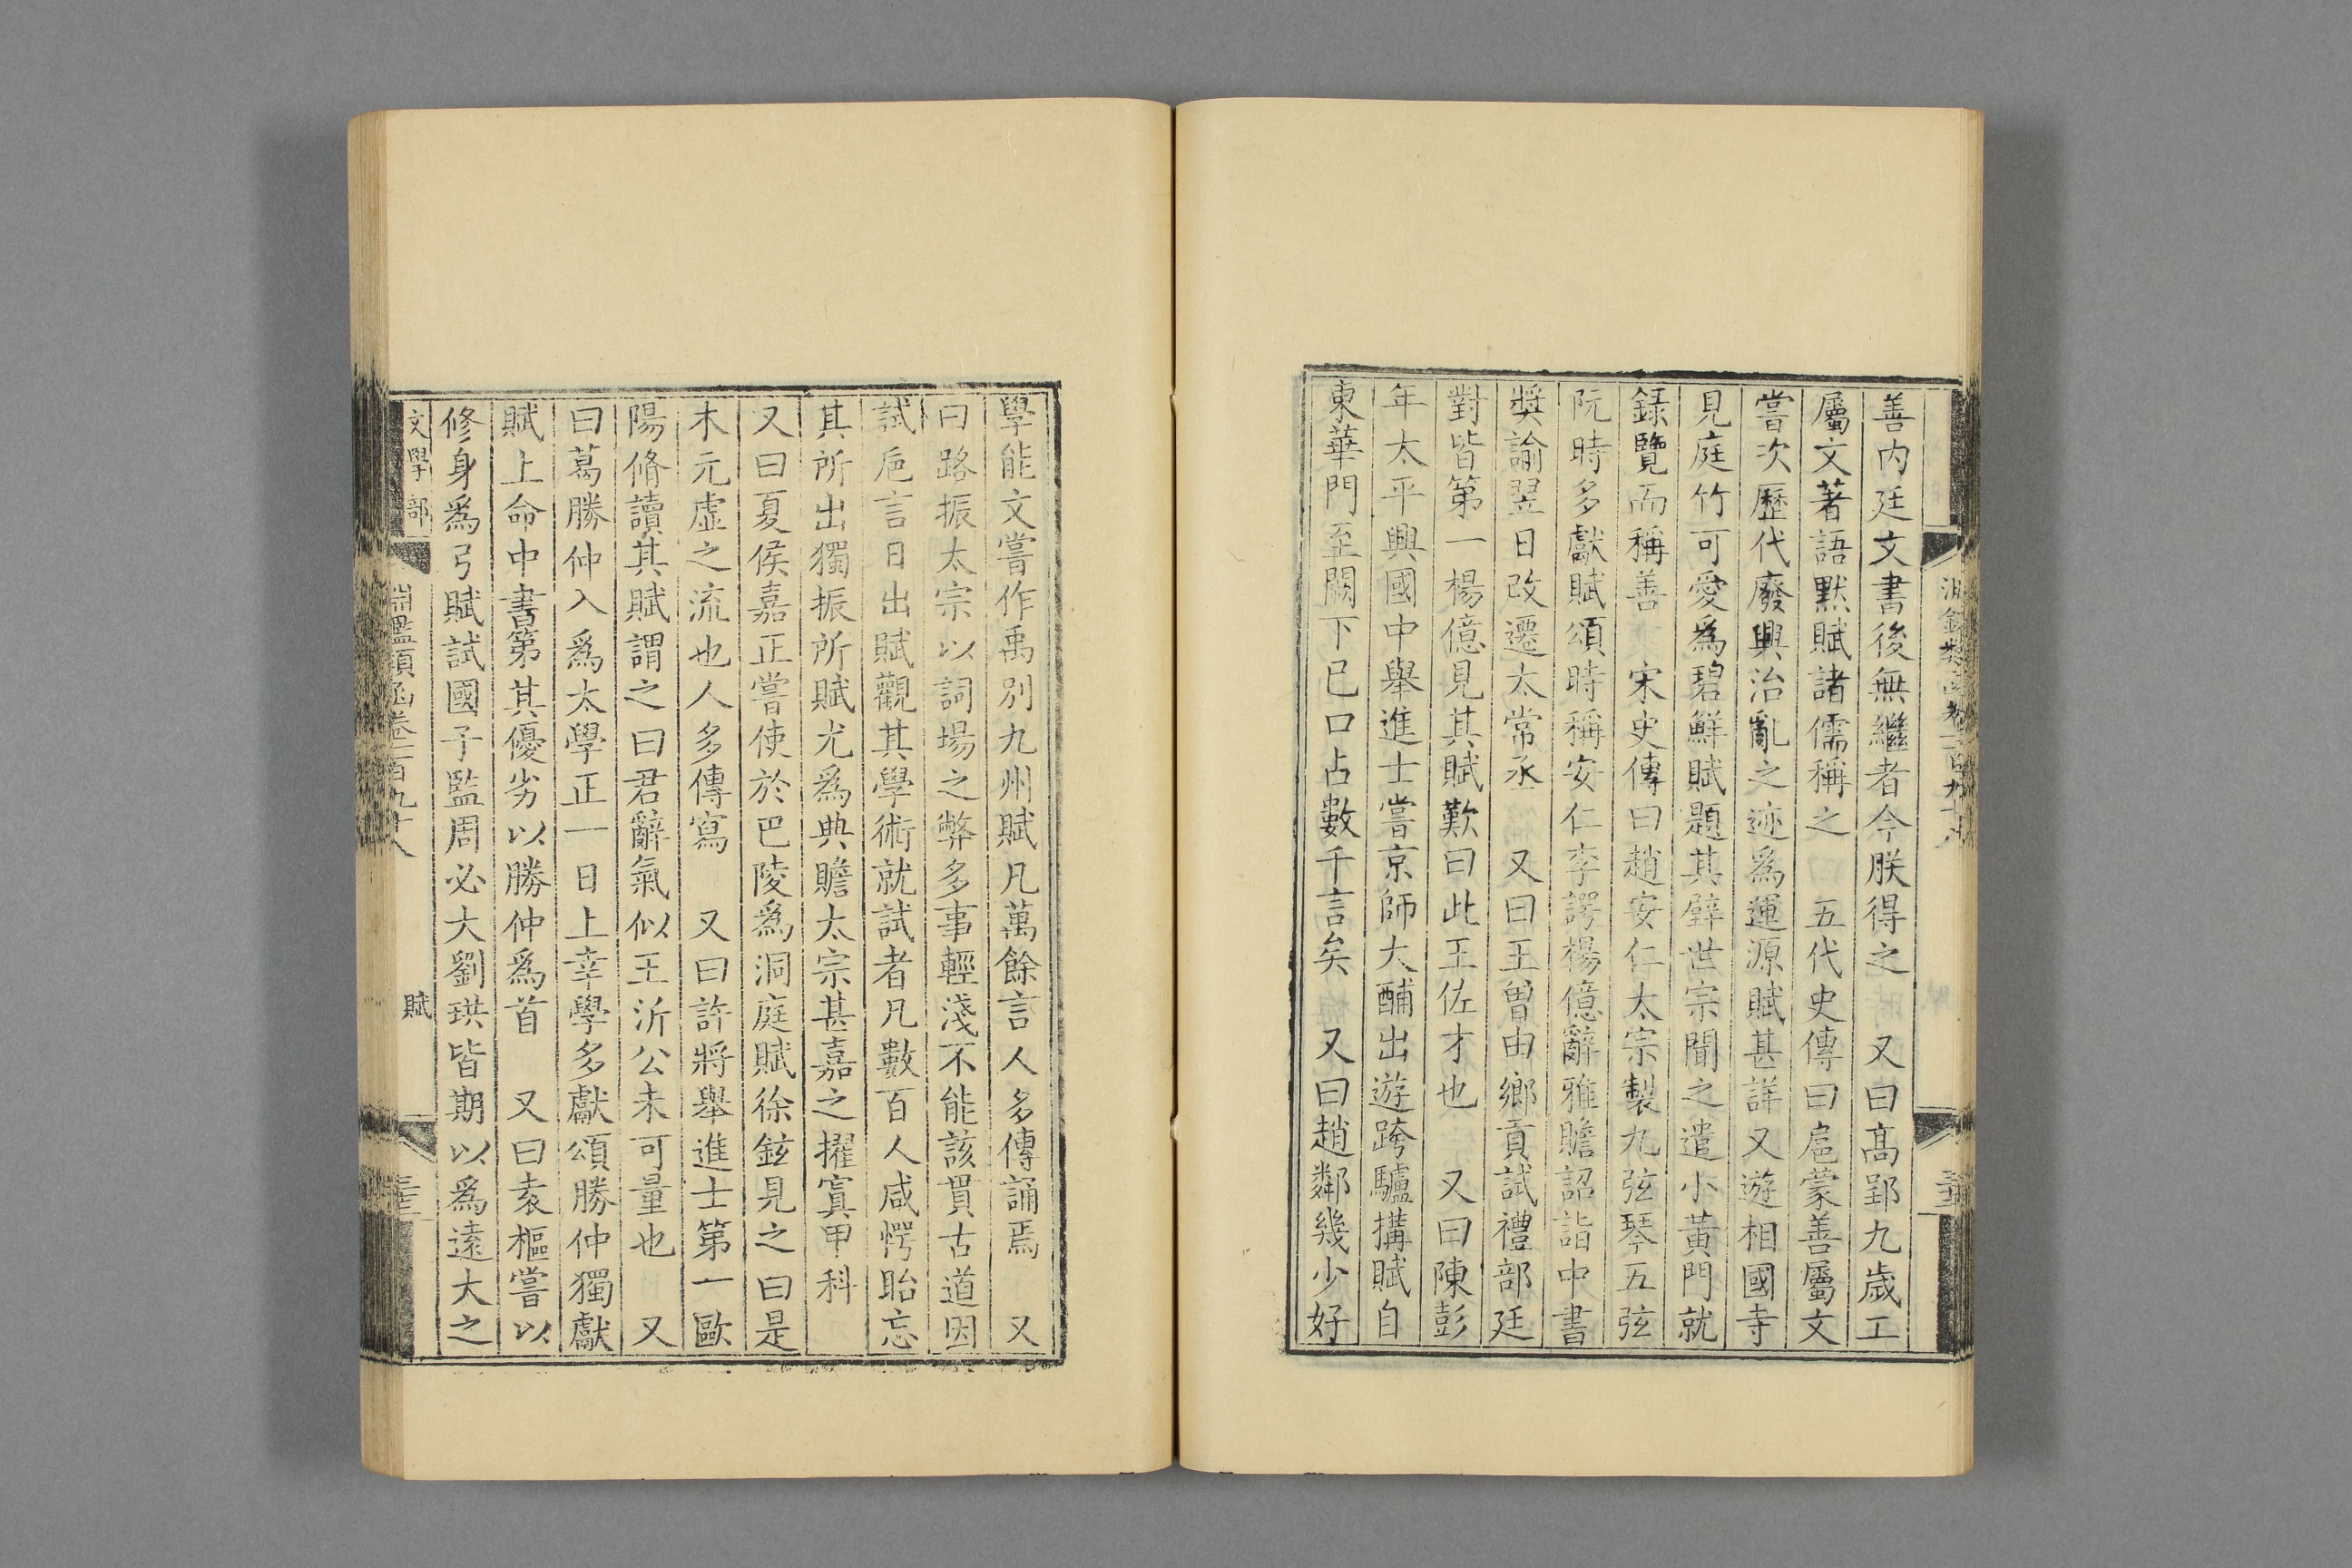 善內廷文書後無繼者今朕得之　又曰高郢九歲工
屬文著語默賦諸儒稱之　五代史傳曰扈蒙善屬文
嘗次歷代廢興治亂之迹為運源賦甚詳又遊相國寺
見庭竹可愛為碧鮮賦題其壁世宗聞之遣小黃門就
錄覽而稱善　宋史傳曰趙安仁太宗製九弦琴五弦
阮時多獻賦頌時稱安仁李諤楊億辭雅贍詔詣中書
獎諭翌日改遷太常丞　又曰王曾由鄉貢試禮部廷
對皆第一楊億見其賦歎曰此王佐才也　又曰陳彭
年太平興國中舉進士嘗京師大酺出遊跨驢搆賦自
東華門至闕下已口占數千言矣　又曰趙鄰幾少好
學能文嘗作禹別九州賦凡萬餘言人多傳誦焉　又
曰路振太宗以詞場之弊多事輕淺不能該貫古道因
試巵言日出賦觀其學術就試者凡數百人咸愕眙忘
其所出獨振所賦尤為典贍太宗甚嘉之擢寘甲科
又曰夏侯嘉正嘗使於巴陵為洞庭賦徐鉉見之曰是
木元虛之流也人多傳寫　又曰許將舉進士第一歐
陽脩讀其賦謂之曰君辭氣似王沂公未可量也　又
曰葛勝仲入為太學正一日上幸學多獻頌勝仲獨獻
賦上命中書第其優劣以勝仲為首　又曰袁樞嘗以
修身為弓賦試國子監周必大劉珙皆期以為遠大之
文學部
淵鑑類函卷一百九十八
賦